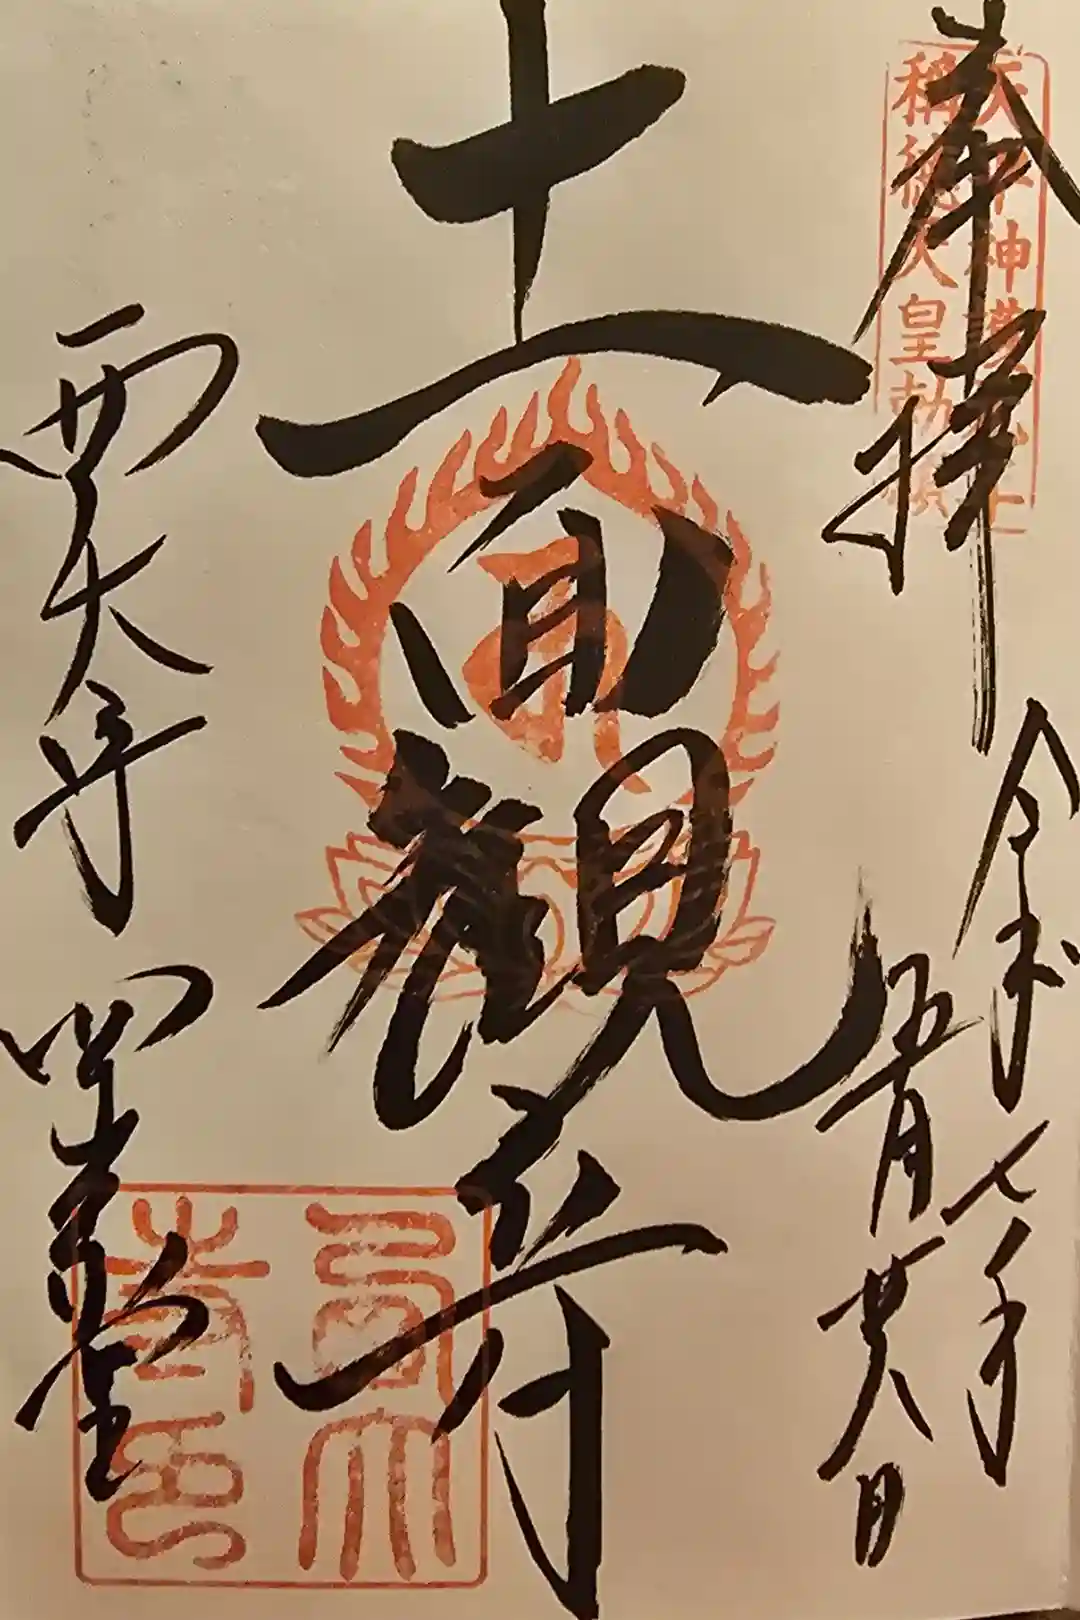 奉拝
天平神護
稱徳天皇勅願
令和七年
伍月廿八日
十一面観音
西大寺 四王堂
西大寺印